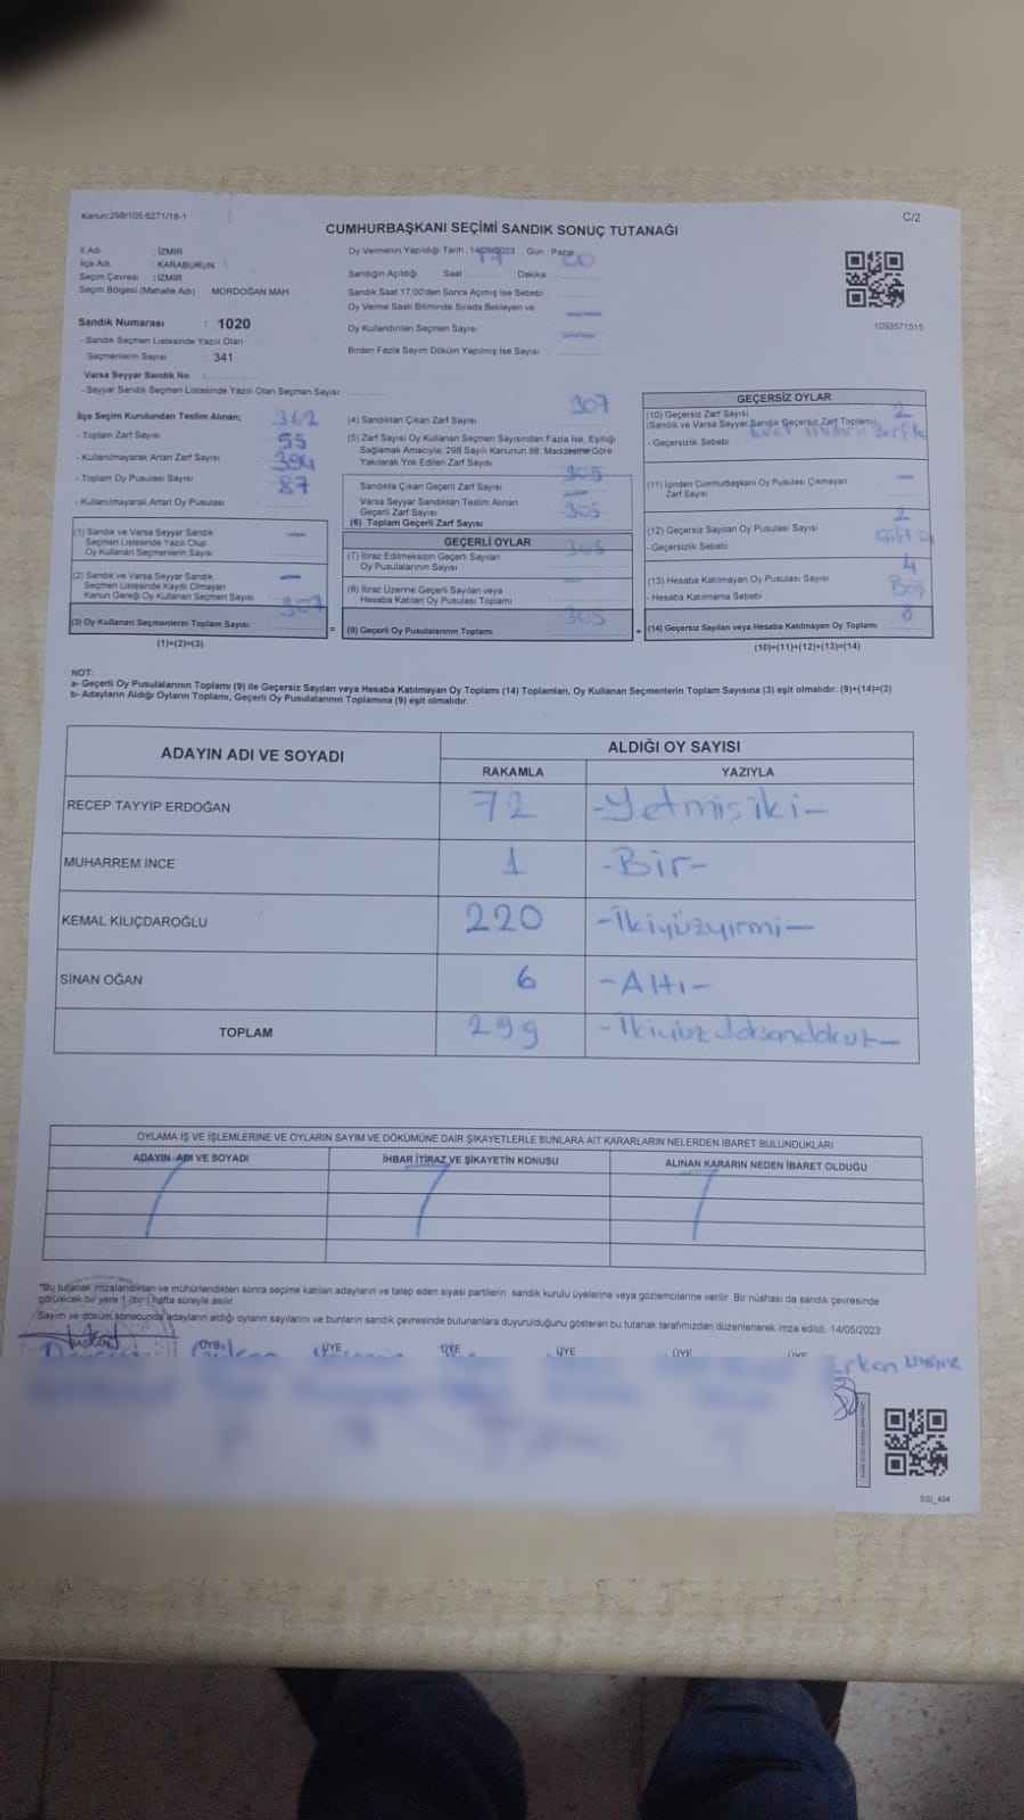 Kanun:298/105-6271/18-1
C/2
CUMHURBAŞKANI SEÇİMİ SANDIK SONUÇ TUTANAĞI
İl Adı İZMİR
İlçe Adı KARABURUN
Seçim Çevresi : İZMİR
Seçim Bölgesi (Mahalle Adı) MORDOĞAN MAH
Sandık Numarası : 1020
- Sandık Seçmen Listesinde Yazılı Olan
Seçmenlerin Sayısı : 341
Varsa Seyyar Sandık No
- Seyyar Sandık Seçmen Listesinde Yazılı Olan Seçmen Sayısı
Oy Vermenin Yapıldığı Tarih : 14/05/2023 Gün : Pazar
Sandığın Açıldığı Saat Dakika
Sandık Saat 17.00'den Sonra Açılmış İse Sebebi
Oy Verme Saati Bitiminde Sırada Bekleyen ve
Oy Kullandırılan Seçmen Sayısı
Birden Fazla Sayım Döküm Yapılmış İse Sayısı
1093571515
İlçe Seçim Kurulundan Teslim Alınan;
- Toplam Zarf Sayısı 362
- Kullanılmayarak Artan Zarf Sayısı 55
- Toplam Oy Pusulası Sayısı 394
- Kullanılmayarak Artan Oy Pusulası 87
(1) Sandık ve Varsa Seyyar Sandık
Seçmen Listesinde Yazılı Olup
Oy Kullanan Seçmenlerin Sayısı
(2) Sandık ve Varsa Seyyar Sandık
Seçmen Listesinde Kaydı Olmayan
Kanun Gereği Oy Kullanan Seçmen Sayısı
(3) Oy Kullanan Seçmenlerin Toplam Sayısı 307
(1)+(2)=(3)
(4) Sandıktan Çıkan Zarf Sayısı 307
(5) Zarf Sayısı Oy Kullanan Seçmen Sayısından Fazla İse, Eşitliği
Sağlamak Amacıyla; 298 Sayılı Kanunun 98. Maddesine Göre
Yakılarak Yok Edilen Zarf Sayısı
Sandıkta Çıkan Geçerli Zarf Sayısı 305
Varsa Seyyar Sandıktan Teslim Alınan
Geçerli Zarf Sayısı
(6) Toplam Geçerli Zarf Sayısı 305
GEÇERLİ OYLAR
(7) İtiraz Edilmeksizin Geçerli Sayılan
Oy Pusulalarının Sayısı 305
(8) İtiraz Üzerine Geçerli Sayılan veya
Hesaba Katılan Oy Pusulası Toplamı
(9) Geçerli Oy Pusulalarının Toplamı 305
GEÇERSİZ OYLAR
(10) Geçersiz Zarf Sayısı 2
(Sandık ve Varsa Seyyar Sandık Geçersiz Zarf Toplamı)
- Geçersizlik Sebebi
(11) İçinden Cumhurbaşkanı Oy Pusulası Çıkmayan
Zarf Sayısı
(12) Geçersiz Sayılan Oy Pusulası Sayısı 2
- Geçersizlik Sebebi
(13) Hesaba Katılmayan Oy Pusulası Sayısı 4
- Hesaba Katılmama Sebebi Boş
(14) Geçersiz Sayılan veya Hesaba Katılmayan Oy Toplamı 8
(10)+(11)+(12)+(13)=(14)
NOT:
a- Geçerli Oy Pusulalarının Toplamı (9) ile Geçersiz Sayılan veya Hesaba Katılmayan Oy Toplamı (14) Toplamları, Oy Kullanan Seçmenlerin Toplam Sayısına (3) eşit olmalıdır. (9)+(14)=(3)
b- Adayların Aldığı Oyların Toplamı, Geçerli Oy Pusulalarının Toplamına (9) eşit olmalıdır.
ADAYIN ADI VE SOYADI
ALDIĞI OY SAYISI
RAKAMLA YAZIYLA
RECEP TAYYİP ERDOĞAN 72 -Yetmişiki-
MUHARREM İNCE 1 -Bir-
KEMAL KILIÇDAROĞLU 220 -İkiyüzyirmi-
SİNAN OĞAN 6 -Altı-
TOPLAM 299
OYLAMA İŞ VE İŞLEMLERİNE VE OYLARIN SAYIM VE DÖKÜMÜNE DAİR ŞİKAYETLERLE BUNLARA AİT KARARLARIN NELERDEN İBARET BULUNDUKLARI
ADAYIN ADI VE SOYADI İHBAR İTİRAZ VE ŞİKAYETİN KONUSU ALINAN KARARIN NEDEN İBARET OLDUĞU
*Bu tutanak imzalandıktan ve mühürlendikten sonra seçime katılan adayların ve talep eden siyasi partilerin, sandık kurulu üyelerine veya gözlemcilerine verilir. Bir nüshası da sandık çevresinde
görülecek bir yere 1 (bir) hafta süreyle asılır.
Sayım ve döküm sonucunda adayların aldığı oyların sayılarını ve bunların sandık çevresinde bulunanlara duyurulduğunu gösteren bu tutanak tarafımızdan düzenlenerek imza edildi. 14/05/2023
ÜYE ÜYE ÜYE ÜYE ÜYE
Erkan